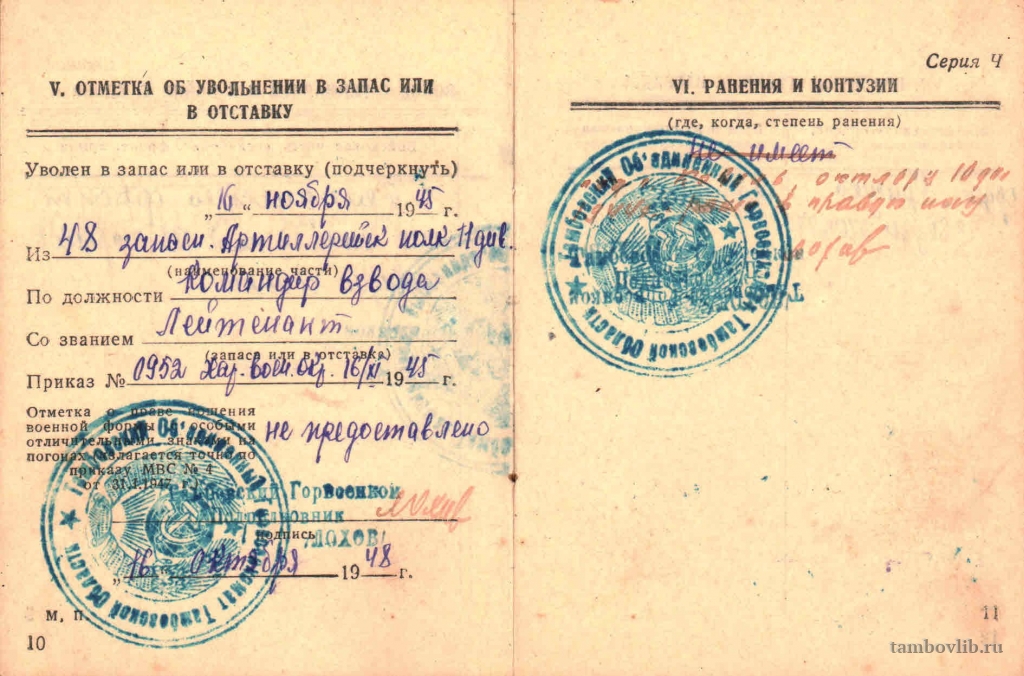 V. ОТМЕТКА ОБ УВОЛЬНЕНИИ В ЗАПАС ИЛИ
В ОТСТАВКУ
Уволен в запас или в отставку (подчеркнуть)
„16" ноября 1945 г.
Из 48 запасн. Артиллерийск полк 11 див.
(наименование части)
По должности Командир взвода
Со званием Лейтенант
(запаса или в отставке)
Приказ № 0952 Хар. воен. окр. 16/XI 1945 г.
Отметка о праве ношения
военной формы с особыми
отличительными знаками на
погонах излагается точно по
приказу МВС № 4
от 31.1.1947 г.)
не предоставлено
Горвоенком
Подполковник
(подпись)
/ЛОХОВ/
„16" октября 1948 г.
М. П.
10
Серия Ч
VI. РАНЕНИЯ И КОНТУЗИИ
(где, когда, степень ранения)
Не имеет
в правую ногу
Тамбовский Об'единенный Горвоенкомат Тамбовской Области
11
tambovlib.ru